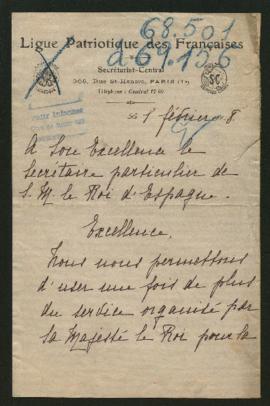 68.501
à 69.156
Ligue Patriotique des Françaises
Secrétariat-Central
368, Rue St-Honoré, PARIS (1er)
SC
1 février 8
A Son Excellence le
Secrétaire particulier de
S. M. le Roi d'Espagne.
Excellence,
Nous nous permettons
d'user une fois de plus
du service organisé par
sa Majesté le Roi pour la